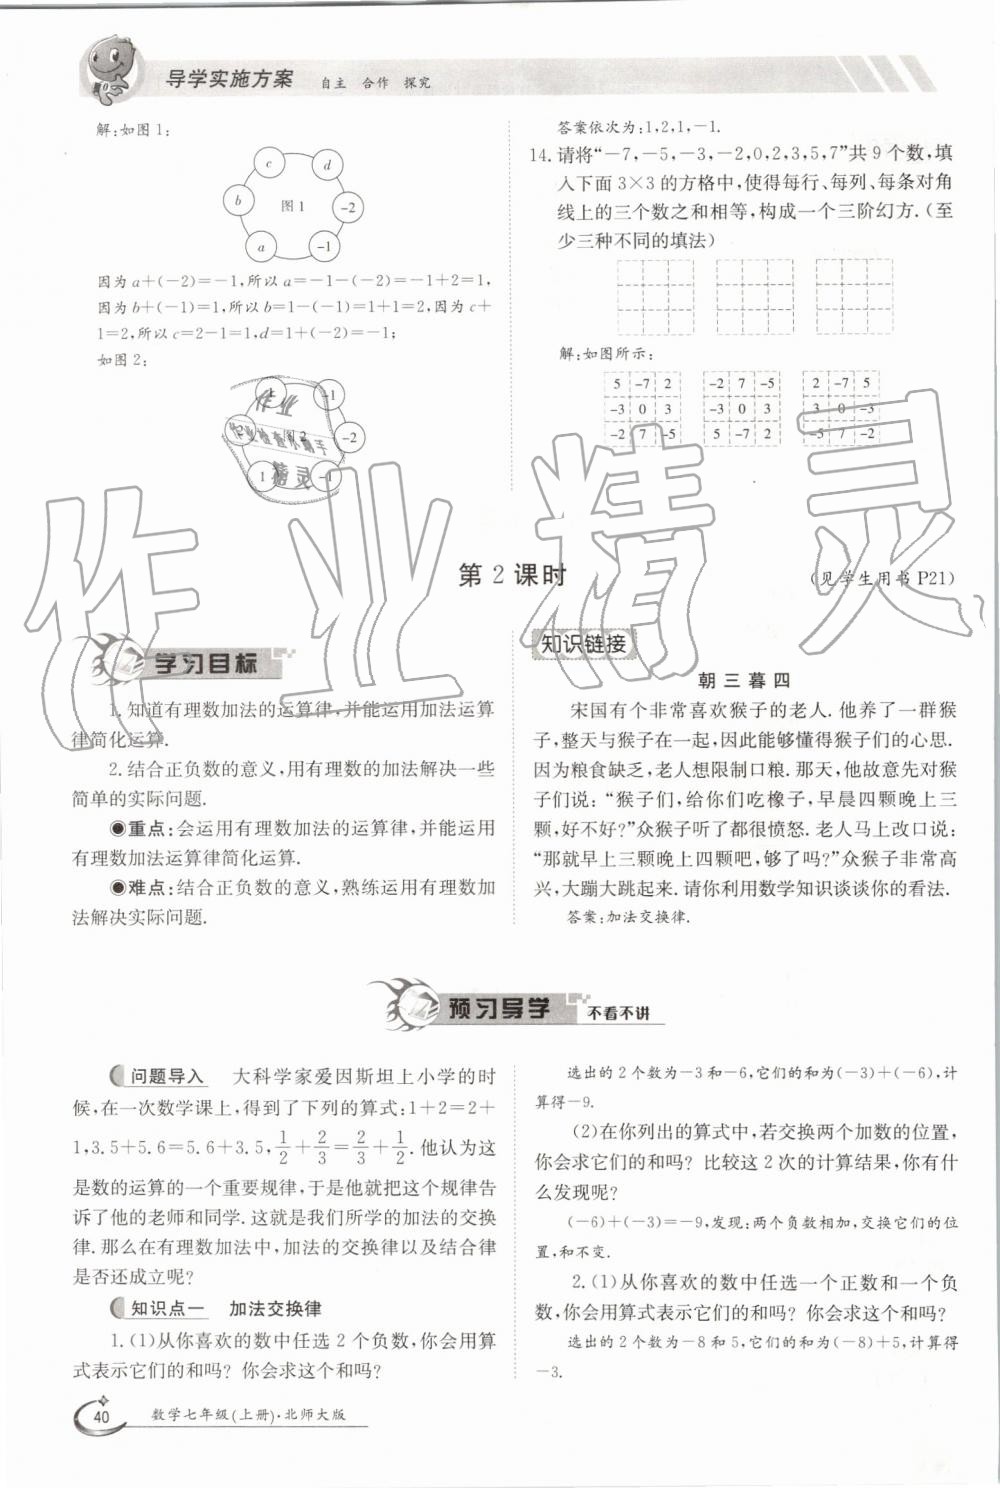 导学实施方案 自主 合作 探究
解:如图1:
c d
b 图1 -2
a -1
因为a+(-2)=-1,所以a=-1-(-2)=-1+2=1,
因为b+(-1)=1,所以b=1-(-1)=1+1=2,因为c+
1=2,所以c=2-1=1,d=1+(-2)=-1;
如图2:
-1
2 -2
1 -1
作业
作业检查小帮手
精灵
答案依次为:1,2,1,-1.
14.请将“-7,-5,-3,-2,0,2,3,5,7”共9个数,填
入下面3×3的方格中,使得每行、每列、每条对角
线上的三个数之和相等,构成一个三阶幻方.(至
少三种不同的填法)
解:如图所示:
5 -7 2 -2 7 -5 2 -7 5
-3 0 3 -3 0 3 3 0 -3
-2 7 -5 5 -7 2 -5 7 -2
作业精灵
第2课时 (见学生用书P21)
学习目标
1.知道有理数加法的运算律,并能运用加法运算
律简化运算.
2.结合正负数的意义,用有理数的加法解决一些
简单的实际问题.
◉重点:会运用有理数加法的运算律,并能运用
有理数加法运算律简化运算.
◉难点:结合正负数的意义,熟练运用有理数加
法解决实际问题.
知识链接
朝三暮四
宋国有个非常喜欢猴子的老人.他养了一群猴
子,整天与猴子在一起,因此能够懂得猴子们的心思.
因为粮食缺乏,老人想限制口粮.那天,他故意先对猴
子们说:“猴子们,给你们吃橡子,早晨四颗晚上三
颗,好不好?”众猴子听了都很愤怒.老人马上改口说:
“那就早上三颗晚上四颗吧,够了吗?”众猴子非常高
兴,大蹦大跳起来.请你利用数学知识谈谈你的看法.
答案:加法交换律.
预习导学 不看不讲
问题导入 大科学家爱因斯坦上小学的时
候,在一次数学课上,得到了下列的算式:1+2=2+
1,3.5+5.6=5.6+3.5,1/2+2/3=2/3+1/2.他认为这
是数的运算的一个重要规律,于是他就把这个规律告
诉了他的老师和同学.这就是我们所学的加法的交换
律.那么在有理数加法中,加法的交换律以及结合律
是否还成立呢?
知识点一 加法交换律
1.(1)从你喜欢的数中任选2个负数,你会用算
式表示它们的和吗?你会求这个和吗?
选出的2个数为-3和-6,它们的和为(-3)+(-6),计
算得-9.
(2)在你列出的算式中,若交换两个加数的位置,
你会求它们的和吗?比较这2次的计算结果,你有什
么发现呢?
(-6)+(-3)=-9,发现:两个负数相加,交换它们的位
置,和不变.
2.(1)从你喜欢的数中任选一个正数和一个负
数,你会用算式表示它们的和吗?你会求这个和吗?
选出的2个数为-8和5,它们的和为(-8)+5,计算得
-3.
40 数学七年级(上册)·北师大版